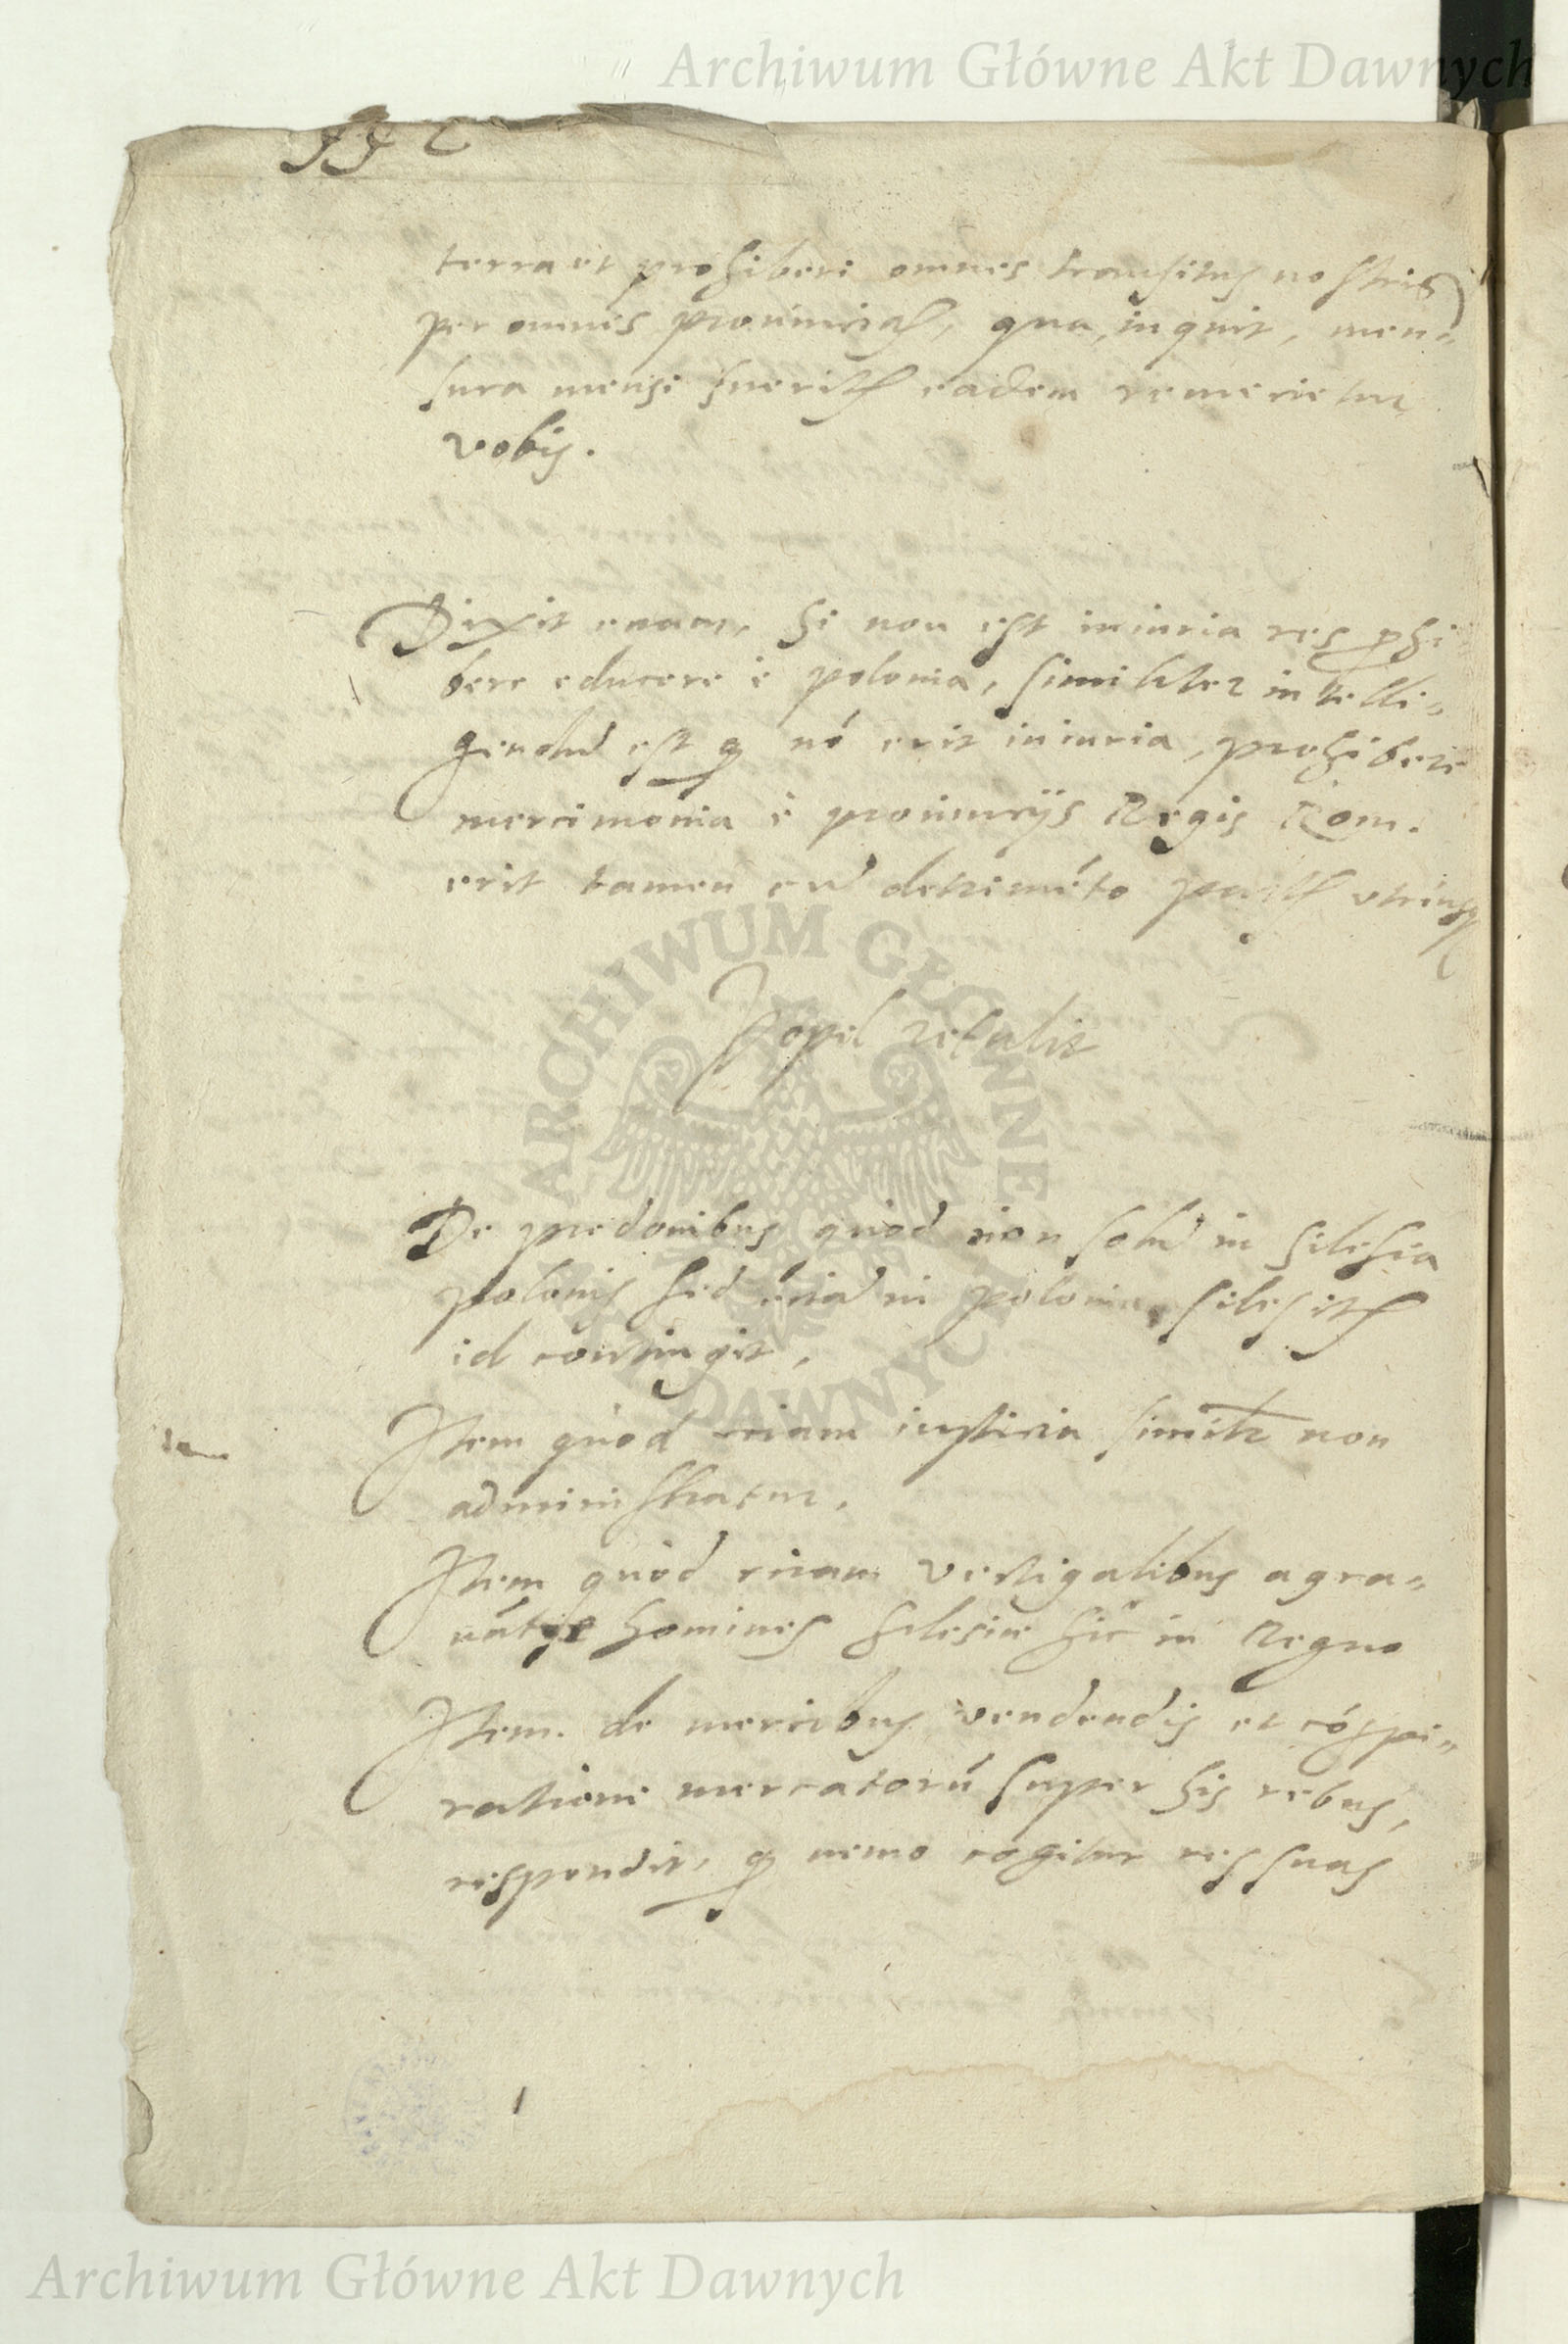 Archiwum Główne Akt Dawnych
terra et prohiberi omnes transitus nostris
per omnes prouincias, qua, inquit, men=
sura mensi fueritis eadem remecietur
vobis.
Dixit etiam, Si non est iniuria res prohi
bere educere è polonia, similiter intelli=
gendũ est q nõ erit iniuria, prohibere
mercimonia è prouincijs Regis Rom.
erit tamen cũ detrimẽto partis vtriusq
Popel retulit
De predonibus quod non solũ in Silesia
polonis sed etiã in polonia, silesitis
id contingit,
Item quod etiam iusticia similr non
administratur,
Item quod etiam vectigalibus agra=
uãtur homines Silesie sic in Regno
Item. de mercibus vendendis et cõspi=
ratione mercatorũ super his rebus,
respondit, q nemo cogitur res suas
ARCHIWUM GŁÓWNE AKT DAWNYCH
Archiwum Główne Akt Dawnych